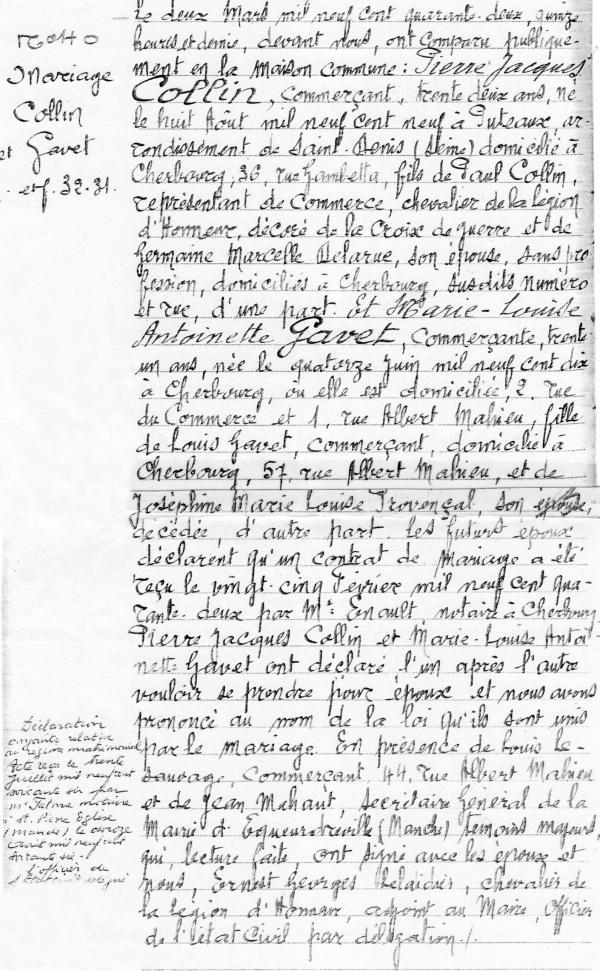 Mariage
Collin
et
Gavet
etf. 32.31.
Le deux Mars mil neuf cent quarante-deux, quinze
heures et demie, devant nous, ont comparu publique-
ment en la maison commune : Pierre Jacques
Collin, commerçant, trente deux ans, né
le huit Août mil neuf cent neuf à Puteaux, ar-
rondissement de Saint-Denis (Seine) domicilié à
Cherbourg, 36, rue Gambetta, fils de Paul Collin,
représentant de Commerce, chevalier de la Légion
d'Honneur, décoré de la Croix de guerre et de
Germaine Marcelle Delarue, son épouse, sans pro
fession, domiciliés à Cherbourg, susdits numéro
et rue, d'une part. Et Marie-Louise
Antoinette Gavet, commerçante, trente
un ans, née le quatorze Juin mil neuf cent dix
à Cherbourg, où elle est domiciliée, 2, rue
du Commerce et 1, rue Albert Mahieu, fille
de Louis Gavet, commerçant, domicilié à
Cherbourg, 57, rue Albert Mahieu, et de
Joséphine Marie Louise Provençal, son épouse,
décédée, d'autre part. Les futurs époux
déclarent qu'un contrat de mariage a été
reçu le vingt-cinq Février mil neuf cent qua-
rante-deux par Me Enault, notaire à Cherbourg
Pierre Jacques Collin et Marie-Louise Antoi-
nette Gavet ont déclaré l'un après l'autre
vouloir se prendre pour époux et nous avons
prononcé au nom de la loi qu'ils sont unis
par le mariage. En présence de Louis Le-
sauvage, commerçant, 44, rue Albert Mahieu
et de Jean Mahaut, secrétaire général de la
Mairie d'Equeurdreville (Manche) témoins majeurs,
qui, lecture faite, ont signé avec les époux et
nous, Ernest Georges, chevalier de
la Légion d'Honneur, adjoint au Maire, Officier
de l'état Civil par délégation./.
Déclaration
conjointe relative
au régime matrimonial
Acte reçu le trente
Juillet mil neuf cent
soixante six par
notaire
à St. Pierre Eglise
(Manche), le
Août mil neuf cent
soixante six -
L'officier de
l'Etat civil